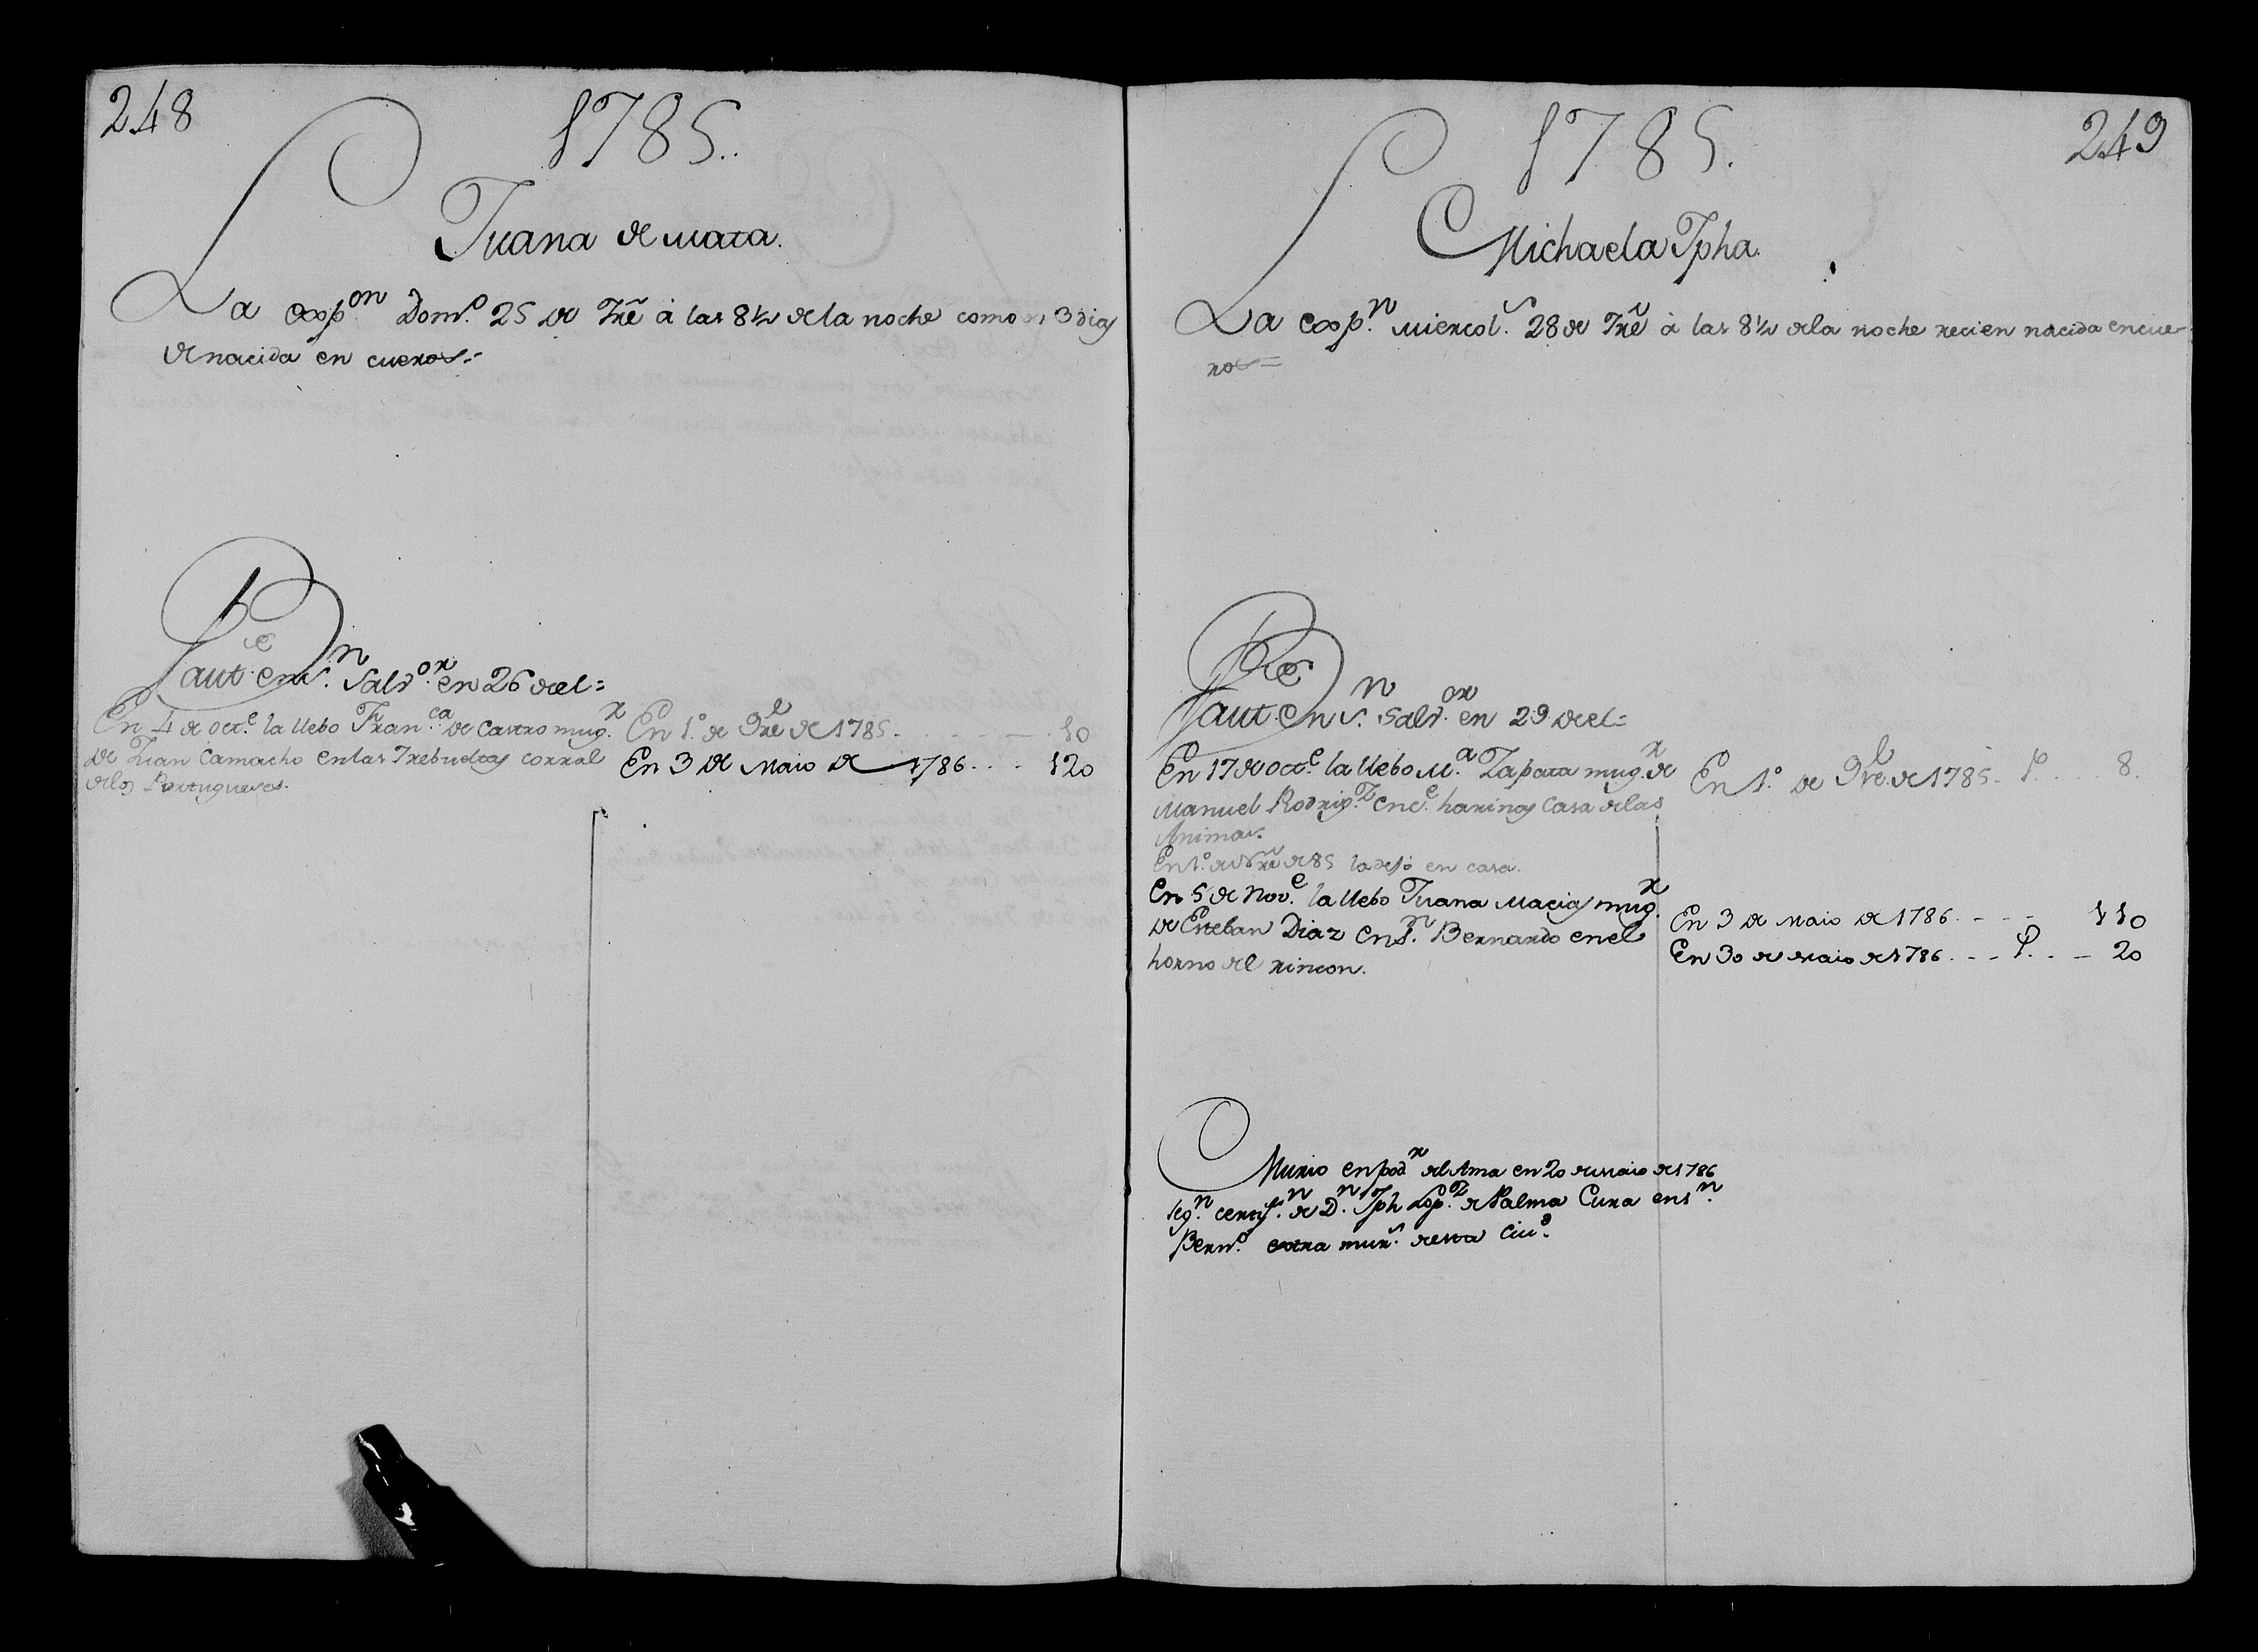 248
1785..
Juana de mata.
La exp.on Dom.o 25 de 7re à las 8½ de la noche como 3 dias
de nacida en cueros=
Baut. en S.n Salv.or en 26 del=
En 4 de oct.e la llebo Fran.ca de Castro mug.r
de Juan Camacho en las Trebueltas corral
de los Portugueses.
En 1.o de 9re de 1785. 10
En 3 de Maio de 1786... 120
249
1785.
Michaela Jpha.
La exp.n Miercol.s 28 de 7re à las 8½ de la noche recien nacida en cue-
ros=
Baut. en S.n Salv.or en 29 del=
En 17 de oct.e la llebo M.a Zapata mug.r de
Manuel Rodrig.z en c.e harinas Casa de las
Animas.
En 1.o de 9re de 85 la dejó en casa.
En 5 de Nov.e la llebo Juana Macias mug.r
de Esteban Diaz en S.n Bernardo en el
horno del rincon.
En 1.o de 9re de 1785. P. 8.
En 3 de Maio de 1786. - - - 110
En 30 de Maio de 1786. - - P. - - 20
Murio en pod.r del Ama en 20 de Maio de 1786
seg.n certif.n de D.n Jph Lop.z de Palma Cura en S.n
Bern.do extra mur.s de esta Ciu.d